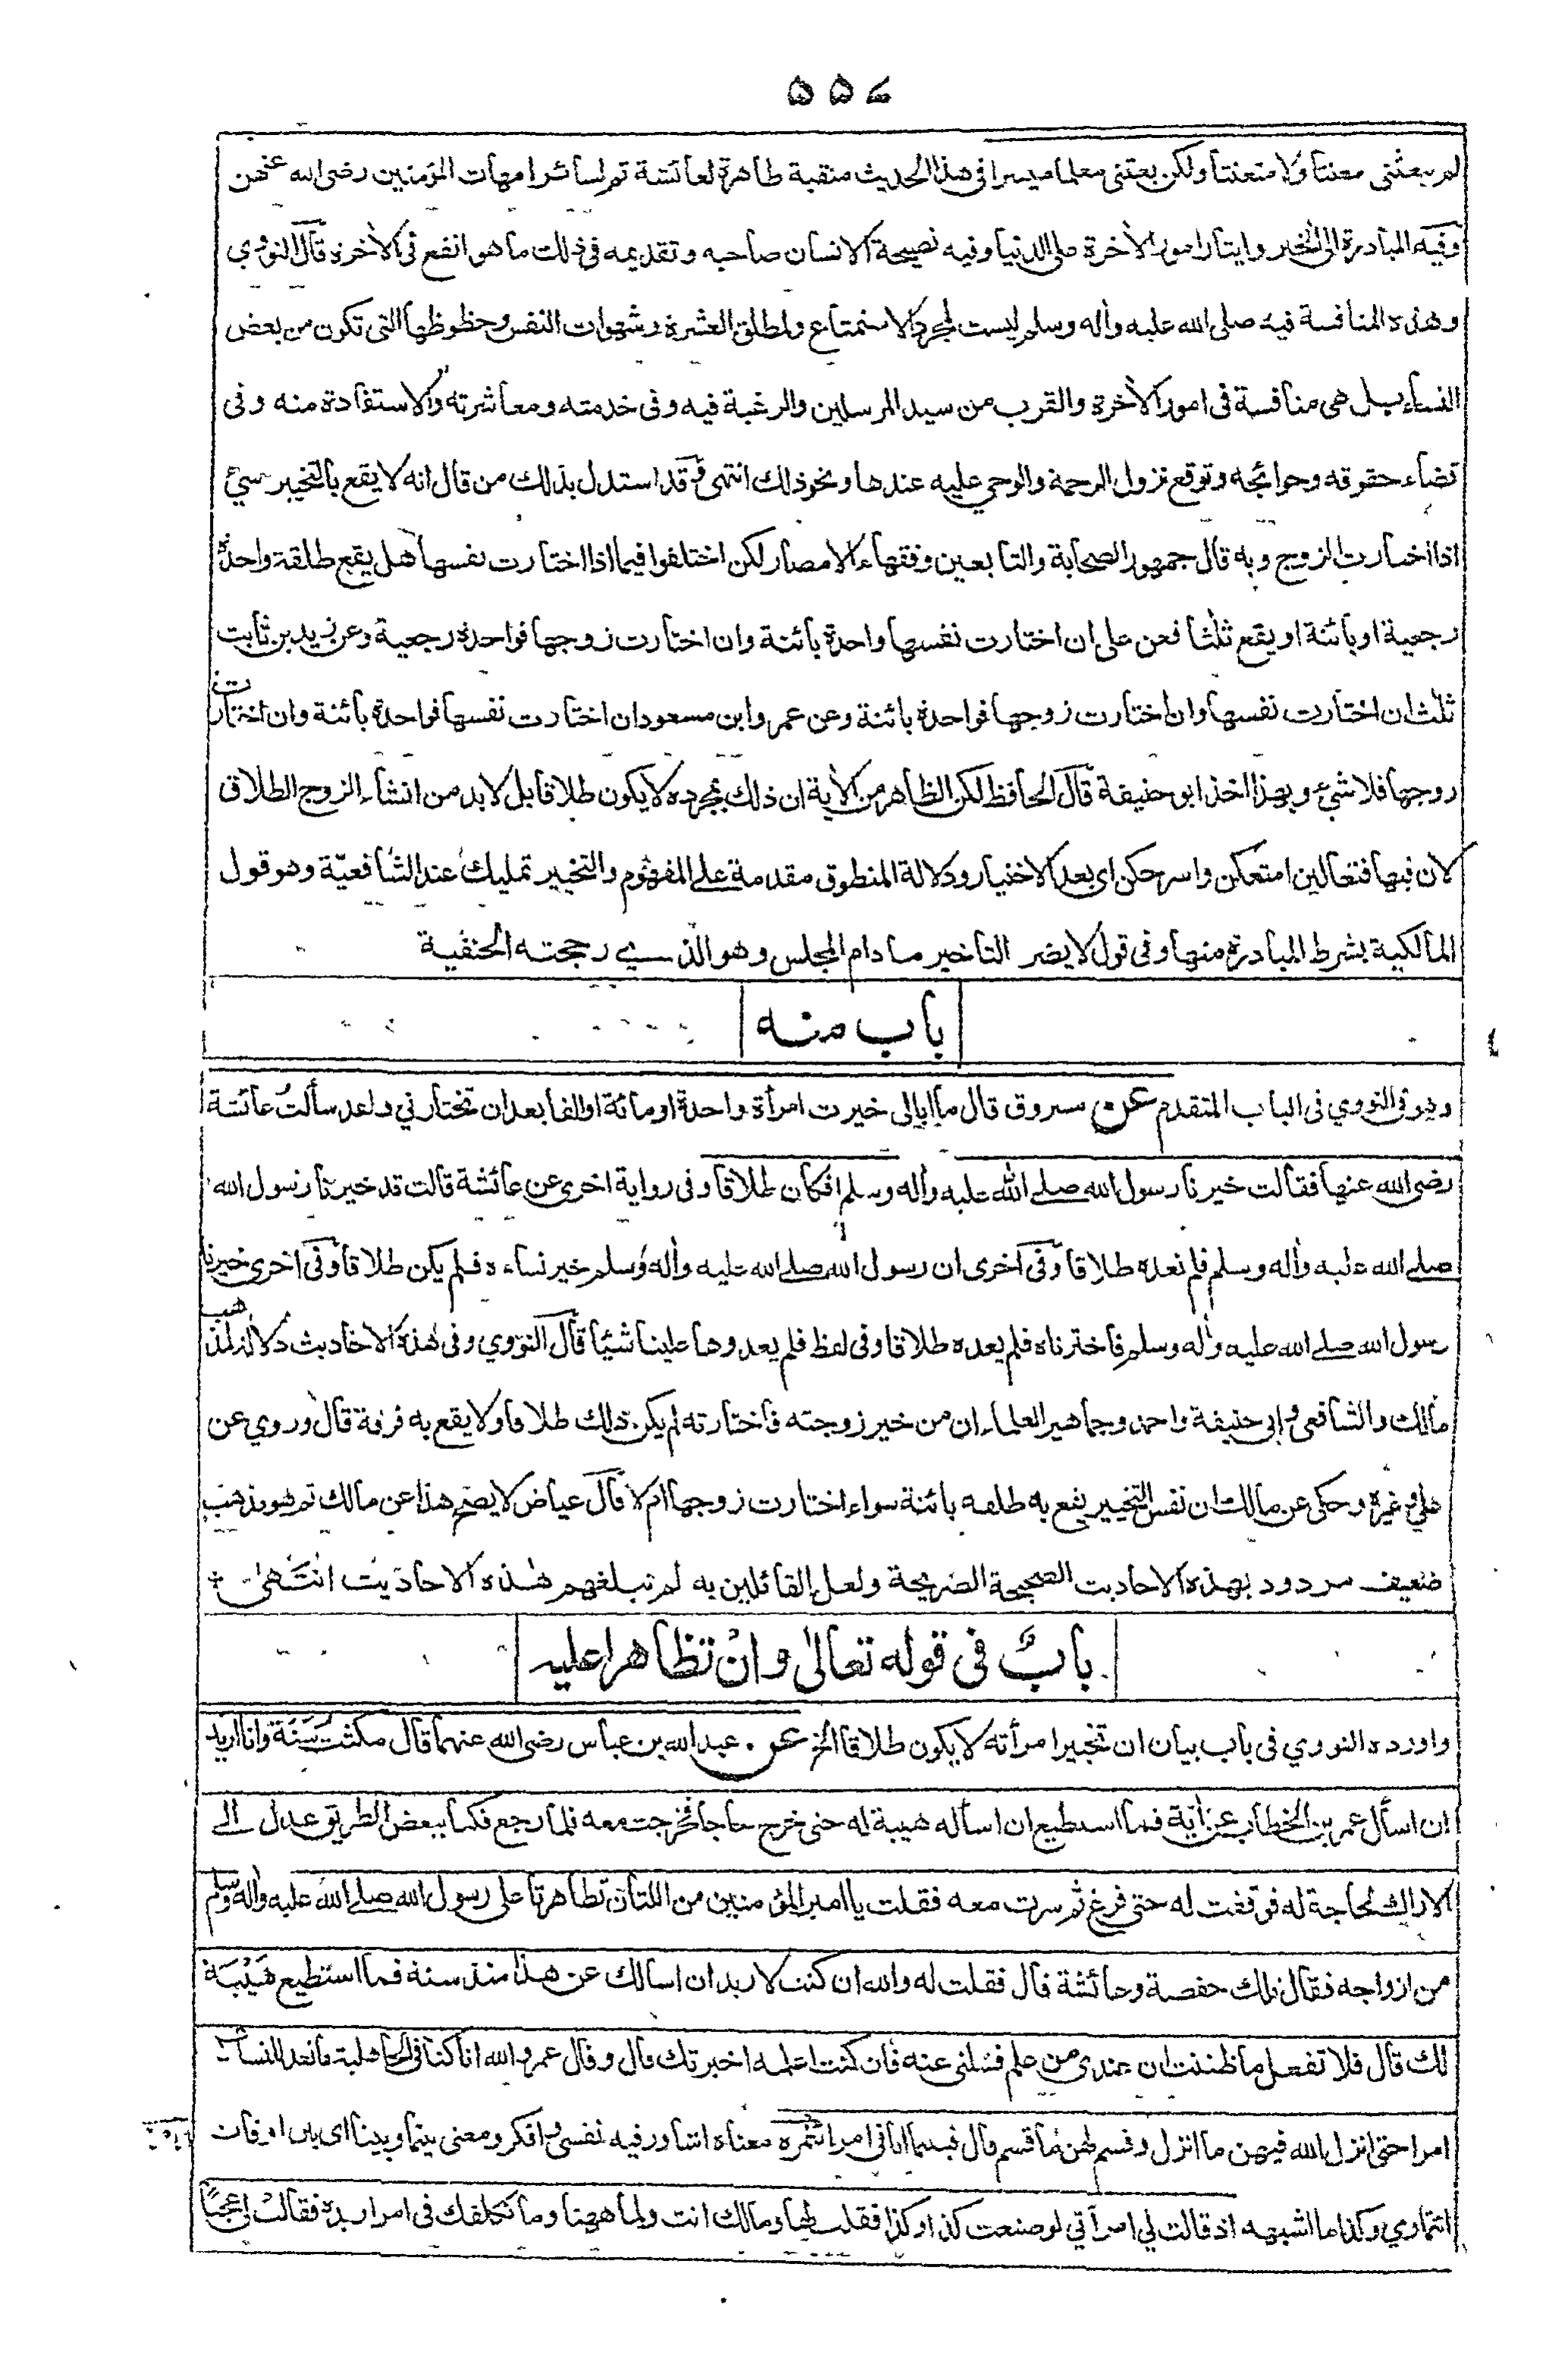 ۵۵۷
لم يبعثني معنتا ولا متعنتا ولكن بعثني معلما ميسرا في هذا الحديث منقبة ظاهرة لعائشة ثم لسائر امهات المؤمنين رضي الله عنهن
وفيه المبادرة الى الخير وايثار امور الاخرة على الدنيا وفيه نصيحة الانسان صاحبه وتقديمه في ذلك ما هو انفع في الاخرة قال النووي
وهذه المنافسة فيه صلى الله عليه واله وسلم ليست لمجرد الاستمتاع ولمطلق العشرة وشهوات النفس وحظوظها التي تكون من بعض
النساء بل هي منافسة في امور الاخرة والقرب من سيد المرسلين والرغبة فيه وفي خدمته ومعاشرته والاستفادة منه وفي
قضاء حقوقه وحوائجه وتوقع نزول الرحمة والوحي عليه عندها ونحو ذلك انتهى وقد استدل بذلك من قال انه لا يقع بالتخيير شيئ
اذا اختارت الزوج وبه قال جمهور الصحابة والتابعين وفقهاء الامصار لكن اختلفوا فيما اذا اختارت نفسها هل يقع طلقة واحدة
رجعية او بائنة او يقع ثلثا فعن علي ان اختارت نفسها واحدة بائنة وان اختارت زوجها فواحدة رجعية وعن زيد بن ثابت
ثلث ان اختارت نفسها وان اختارت زوجها فواحدة بائنة وعن عمر وابن مسعود ان اختارت نفسها فواحدة بائنة وان اختارت
زوجها فلا شيء وبهذا اخذ ابو حنيفة قال الحافظ لكن الظاهر من الاية ان ذلك بمجرده لا يكون طلاقا بل لا بد من انشاء الزوج الطلاق
لان فيها فتعالين امتعكن واسرحكن اي بعد الاختيار ودلالة المنطوق مقدمة على المفهوم والتخيير تمليك عند الشافعية وهو قول
المالكية بشرط المبادرة منها وفي قول لا يضر التاخير ما دام المجلس وهو الذي رجحته الحنفية
باب منه
وهو في النووي في الباب المتقدم عن مسروق قال ما ابالي خيرت امرأة واحدة او مائة او الفا بعد ان تختارني ولقد سألت عائشة
رضي الله عنها فقالت خيرنا رسول الله صلى الله عليه واله وسلم افكان طلاقا وفي رواية اخرى عن عائشة قالت قد خيرنا رسول الله
صلى الله عليه واله وسلم فلم نعده طلاقا وفي اخرى ان رسول الله صلى الله عليه واله وسلم خير نساءه فلم يكن طلاقا وفي اخرى خيرنا
رسول الله صلى الله عليه واله وسلم فاخترناه فلم يعده طلاقا وفي لفظ فلم يعدوها علينا شيئا قال النووي وفي هذه الاحاديث دلالة لمذهب
مالك والشافعي وابي حنيفة واحمد وجماهير العلماء ان من خير زوجته فاختارته لم يكن ذلك طلاقا ولا يقع به فرقة قال وروي عن
علي وغيره وحكى عن مالك ان نفس التخيير يقع به طلقه بائنة سواء اختارت زوجها ام لا قال عياض لا يصح هذا عن مالك ثم هو مذهب
ضعيف مردود بهذه الاحاديث الصحيحة الصريحة ولعل القائلين به لم تبلغهم هذه الاحاديث انتهى
باب في قوله تعالى وان تظاهرا عليه
واورده النووي في باب بيان ان تخييرا مرأته لا يكون طلاقا الخ عن عبد الله بن عباس رضي الله عنهما قال مكثت سنة وانا اريد
ان اسأل عمر بن الخطاب عن اية فما استطيع ان اسأله هيبة له حتى خرج حاجا فخرجت معه فلما رجع فكنا ببعض الطريق عدل الى
الاراك لحاجة له فوقفت له حتى فرغ ثم سرت معه فقلت يا امير المؤمنين من اللتان تظاهرتا على رسول الله صلى الله عليه واله وسلم
من ازواجه فقال تلك حفصة وعائشة قال فقلت له والله ان كنت لاريد ان اسالك عن هذا منذ سنة فما استطيع هيبة
لك قال فلا تفعل ما ظننت ان عندي من علم فسلني عنه فان كنت اعلمه اخبرتك قال وقال عمر والله انا كنا في الجاهلية ما نعد للنساء
امرا حتى انزل الله فيهن ما انزل وقسم لهن ما قسم قال فبينما انا في امر ائتمره معناه اشاور فيه نفسي وافكر ومعنى بينما وبينا اي بين اوقات
ائتماري وكذا ما اشبهه اذ قالت لي امرأتي لو صنعت كذا وكذا فقلت لها وما لك انت ولما ههنا وما تكلفك في امر اريده فقالت لي عجبا